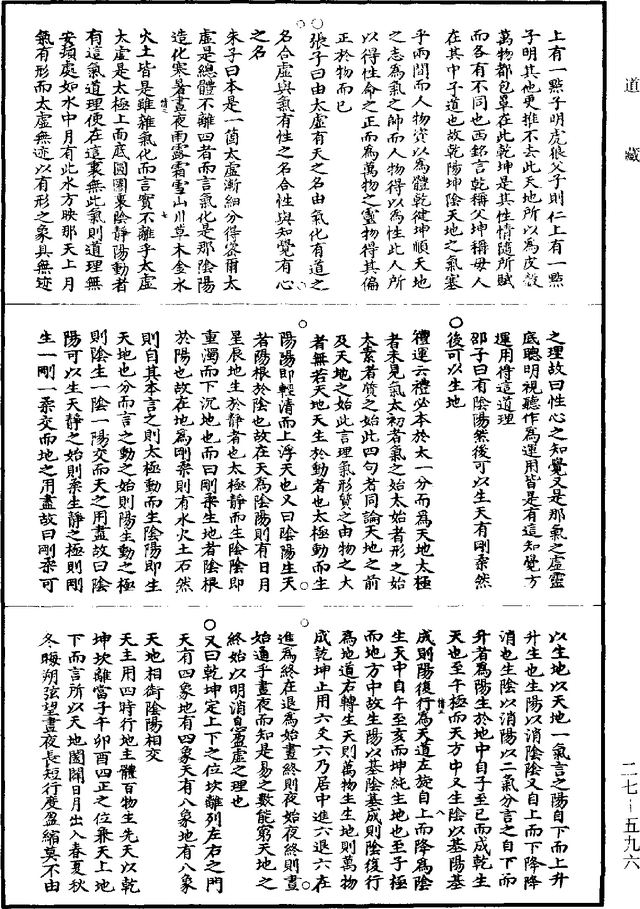 道藏
上有一點子明虎狼父子則仁上有一點
子明其他更推不去此天地所以為皮殼
萬物都包罩在此乾坤是其性情隨所賦
而各有不同也西銘言乾稱父坤稱母人
在其中子道也故乾陽坤陰天地之氣塞
乎兩間而人物資以為體乾健坤順天地
之志為氣之帥而人物得以為性此人所
以得性命之正而為萬物之靈物得其偏
正於物而已
○張子曰由太虛有天之名由氣化有道之
名合虛與氣有性之名合性與知覺有心
之名
朱子曰本是一箇太虛漸細分得密爾太
虛是總體不離四者而言氣化是那陰陽
造化寒暑晝夜雨露霜雪山川草木金水
火土皆是雖雜氣化而言實不離乎太虛
太虛是太極上面底圓圈裏陰靜陽動者
有這氣道理便在這裏無此氣則道理無
安頓處如水中月有此水方映那天上月
氣有形而太虛無迹以有形之象具無迹
之理故曰性心之知覺又是那氣之虛靈
底聰明視聽作為運用皆是有這知覺方
運用得這道理
○邵子曰有陰陽然後可以生天有剛柔然
後可以生地
禮運云禮必本於太一分而為天地太極
者未見氣太初者氣之始太始者形之始
太素者質之始此四句者同論天地之前
及天地之始此言理氣形質之由物之大
者無若天地天生於動者也太極動而生
陽陽即輕清而上浮天也又曰陰陽生天
者陽根於陰也故在天為陰陽則有日月
星辰地生於靜者也太極靜而生陰陰即
重濁而下沉地也而曰剛柔生地者陰根
於陽也故在地為剛柔則有水火土石然
則自其本言之則太極動而生陰陽即生
天地也分而言之動之始則陽生動之極
則陰生一陰一陽交而天之用盡故曰陰
陽可以生天靜之始則柔生靜之極則剛
生一剛一柔交而地之用盡故曰剛柔可
以生地以天地一氣言之陽自下而上升
升生也生陽以消陰陰又自上而下降降
消也生陰以消陽以二氣分言之自下而
升者為陽生於地中自子至巳而成乾生
天也至午極而天方中又生陰以基陽基
成則陽復行為天道左旋自上而降為陰
生天中自午至亥而坤純主地也至子極
而地方中故生陽以基陰基成則陰復行
為地道右轉生天則萬物生生地則萬物
成乾坤止用六爻六乃居中進六退六在
進為終在退為始晝終則夜始夜終則晝
始通乎晝夜而知是易之數能窮天地之
終始以明消息盈虛之理也
○又曰乾坤定上下之位坎離列左右之門
天有四象地有四象天有八象地有八象
天地相銜陰陽相交
天主用四時行地主體百物生先天以乾
坤坎離當子午卯酉四正之位乘天上地
下而言所以天地闔闢日月出入春夏秋
冬晦朔弦望晝夜長短行度盈縮莫不由
二七—五九六